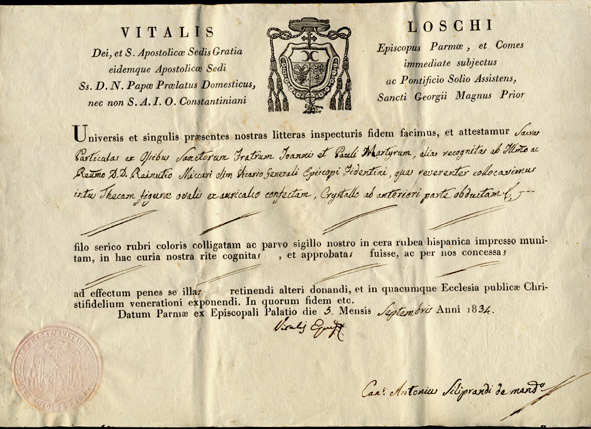 VITALIS LOSCHI
Dei, et S. Apostolicæ Sedis Gratia Episcopus Parmæ, et Comes
eidemque Apostolicæ Sedi immediate subjectus
Ss. D. N. Papæ Prælatus Domesticus, ac Pontificio Solio Assistens,
nec non S. A. I. O. Constantiniani Sancti Georgii Magnus Prior
Universis et singulis præsentes nostras litteras inspecturis fidem facimus, et attestamur Sacras
Particulas ex Ossibus Sanctorum Fratrum Joannis et Pauli Martyrum, alias recognitas ab Illmo ac
Revmo D. D. Rainutio Maccari olim Vicario Generali Episcopi Fidentini, quas reverenter collocavimus
intus Thecam figuræ ovalis ex auricalco confectam, Crystallo ab anteriori parte obductam
filo serico rubri coloris colligatam ac parvo sigillo nostro in cera rubea hispanica impresso muni-
tam, in hac curia nostra rite cognitas, et approbatas fuisse, ac per nos concessas
ad effectum penes se illas retinendi alteri donandi, et in quacumque Ecclesia publicæ Chri-
stifidelium venerationi exponendi. In quorum fidem etc.
Datum Parmæ ex Episcopali Palatio die 3. Mensis Septembris Anni 1834.
Vitalis
Can.s Antonius Siliprandi de mand.o